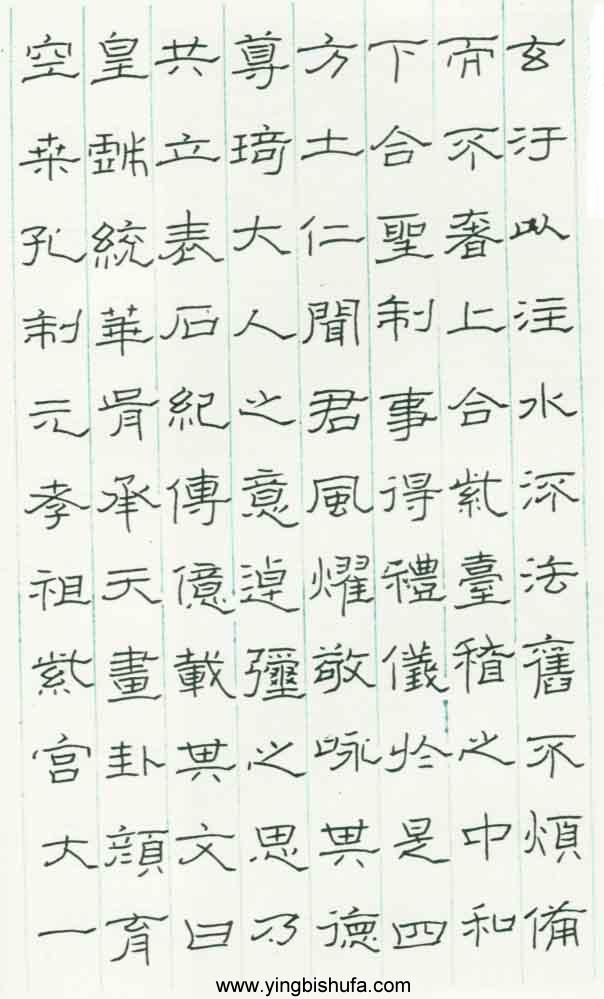 玄汙以注水流法舊不煩備
而不奢上合紫臺稽之中和
下合聖制事得禮儀於是四
方土仁聞君風燿敬咏其德
尊琦大人之意逴彌之思乃
共立表石紀傳億載其文曰
皇戲統華胥承天畫卦顏育
空桑孔制元孝祖紫宮大一
www.yingbishufa.com